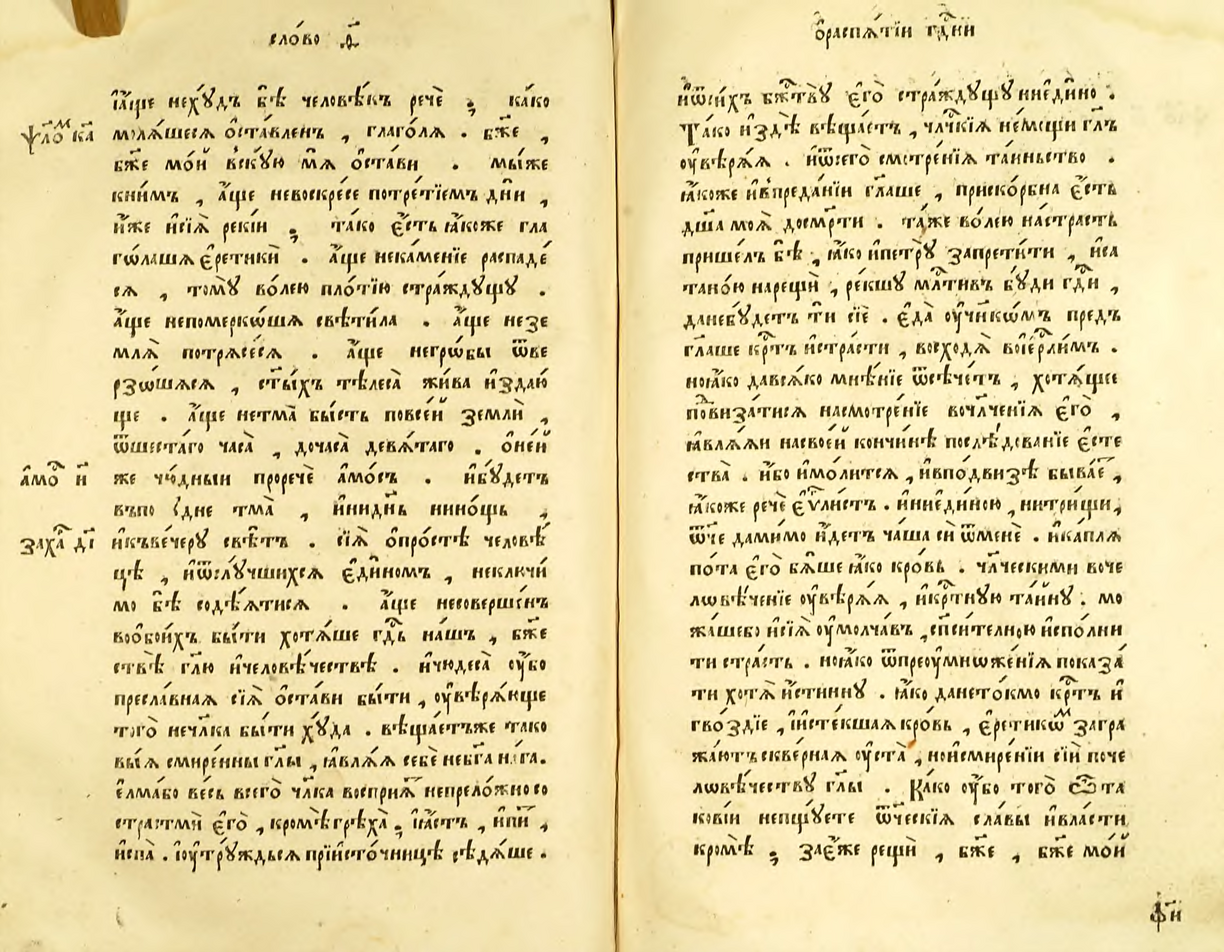 сло́во д҃
і҆а҆́ще нехꙋ́дъ бѣ̀ человѣ́къ речѐ ; ка́ко
ѱало́м ка
молѧ́шесѧ ѡ҆ста́вленъ , глаго́лѧ . бж҃е ,
бж҃е мо́й вскꙋ́ю мѧ̀ ѡ҆ста́ви . мы́же
кни́мъ , а҆́ще невоскре́се потре́тїемъ дн҃и ,
и҆́же и҆сїѧ̀ реки́и ; та́ко є҆́сть ꙗ҆́коже гла
го́лашѧ є҆ретикѝ . а҆́ще нека́менїе распаде́
сѧ , томꙋ̀ во́лею пло́тїю стра́ждꙋщꙋ .
а҆́ще непомерко́шѧ свѣти́ла . а҆́ще незе
млѧ̀ потрѧсе́сѧ . а҆́ще негро́бы ѿве
рзо́шѧсѧ , ст҃ы́хъ тѣлеса̀ жи́ва и҆здаю́
ще . а҆́ще нетма̀ бы́сть повсе́й землѝ ,
ѿшеста́го часа̀ , дочаса̀ девѧ́таго . ѡ҆не́й
а҆мо́с и҃
же чю́дныи проречѐ а҆мо́съ . и҆бꙋ́детъ
въпо лꙋдне тма̀ , и҆нидн҃ь нино́щь ,
заха́р д҃і
и҆къве́черꙋ свѣ́тъ . сїѧ̀ ѡ҆про́стѣ человѣ́
цѣ , и҆ѡ҆слꙋ́чшихсѧ є҆ди́номъ , неключи́
мо бѣ̀ содѣ́ѧтисѧ . а҆́ще несоверше́нъ
вообои́хъ бы́ти хотѧ́ше гд҇ь на́шъ , бж҃е
ствѣ̀ гл҃ю и҆человѣ́чествѣ . и҆чюдеса̀ ᲂу҆́бо
пресла́внаѧ сїѧ̀ ѡ҆ста́ви бы́ти , ᲂу҆вѣрѧ́юще
того̀ нечл҃ка бы́ти хꙋ́да . вѣща́етъже тако
вы́ѧ смире́нны гл҃ы , ꙗ҆влѧ́ѧ себѐ небг҃а на́га.
є҆лма́бо весь всего̀ чл҃ка воспрїѧ́т непрело́жносо
страстмѝ є҆го̀ , кромѣ̀грѣха̀ ; ꙗ҆́стъ , и҆пи́т ,
и҆спа̀ . і҆ᲂу҆трꙋ́ждьсѧ прїи҆сто́чницѣ сѣдѧ́ше .
ѡ҆распѧ́тїи гд҇ни
и҆ѡ҆си́хъ бж҇твꙋ̀ є҆го̀ стра́ждꙋщꙋ ниеди́но .
Та́ко и҆здѣ̀ вѣща́етъ , чл҃чкїѧ не́мощи гл҃ъ
ᲂу҆вѣрѧ́ѧ . и҆ѡ҆сего̀ смотре́нїѧ та́иньство .
ꙗ҆́коже и҆впреда́нїи гл҃аше , приско́рбна є҆́сть
дш҃а моѧ̀ досм҃рти . та́же во́лею на́страсть
прише́лъ бѣ̀ , ꙗ҆́ко и҆петрꙋ̀ запрети́ти , и҆са
тано́ю нарещѝ , ре́кшꙋ мл҇тивъ бꙋ́ди гд҇и ,
данебꙋ́детъ ти сїѐ . є҆да̀ ᲂу҆ч҃нико́мъ пред̾
гл҃аше кр҇тъ и҆стра́сти , восходѧ̀ вои҆ер҇лимъ .
ноꙗ҆́ко давсѧ́ко мнѣ́нїе ѿсѣче́тъ , хотѧ́щее
по́визатисѧ насмотре́нїе вочл҃че́нїѧ є҆гѡ̀ ,
ꙗ҆влѧ́ѧи насвое́й кончи́нѣ послѣ́дованїе є҆сте
ства̀ . и҆́бо и҆мо́литсѧ , и҆впо́двизѣ быва́е ,
ꙗ҆́коже речѐ є҆ѵ҃листъ . и҆ниеди́ною , нитри́щи ,
ѿ́че дами́мо и҆́детъ ча́ша сиѝ ѿменѐ . и҆ка́плѧ
по́та є҆го̀ бѧ́ше ꙗ҆́ко кро́вь . чл҃ческими воче
ловѣ́ченїе ᲂу҆вѣрѧ́ѧ , и҆кр҇тнꙋю та́йнꙋ . мо
жа́шебо и҆сїѧ̀ ᲂу҆молча́въ , спс҃и́телною и҆спо́лни
ти стра́сть . ноꙗ҆́ко ѿпреᲂу҆множе́нїѧ показа́
ти хотѧ̀ и҆́стиннꙋ . ꙗ҆́ко дането́кмо кр҇тъ и҆
гво́здїе , і҆и҆сте́кшаѧ кро́вь , є҆ретико́м загра
жа́ютъ скве́рнаѧ ᲂу҆ста̀ , нои҆смире́нїи сїѝ поче
ловѣ́чествꙋ гл҃ы . Ка́ко ᲂу҆́бо того̀ ѡ҆та
ковы́й непщꙋ́ете ѿ́ческїѧ сла́вы и҆вла́сти
кро́мѣ ; зае҆́же рещѝ , бж҃е , бж҃е мо́й
ф҃и